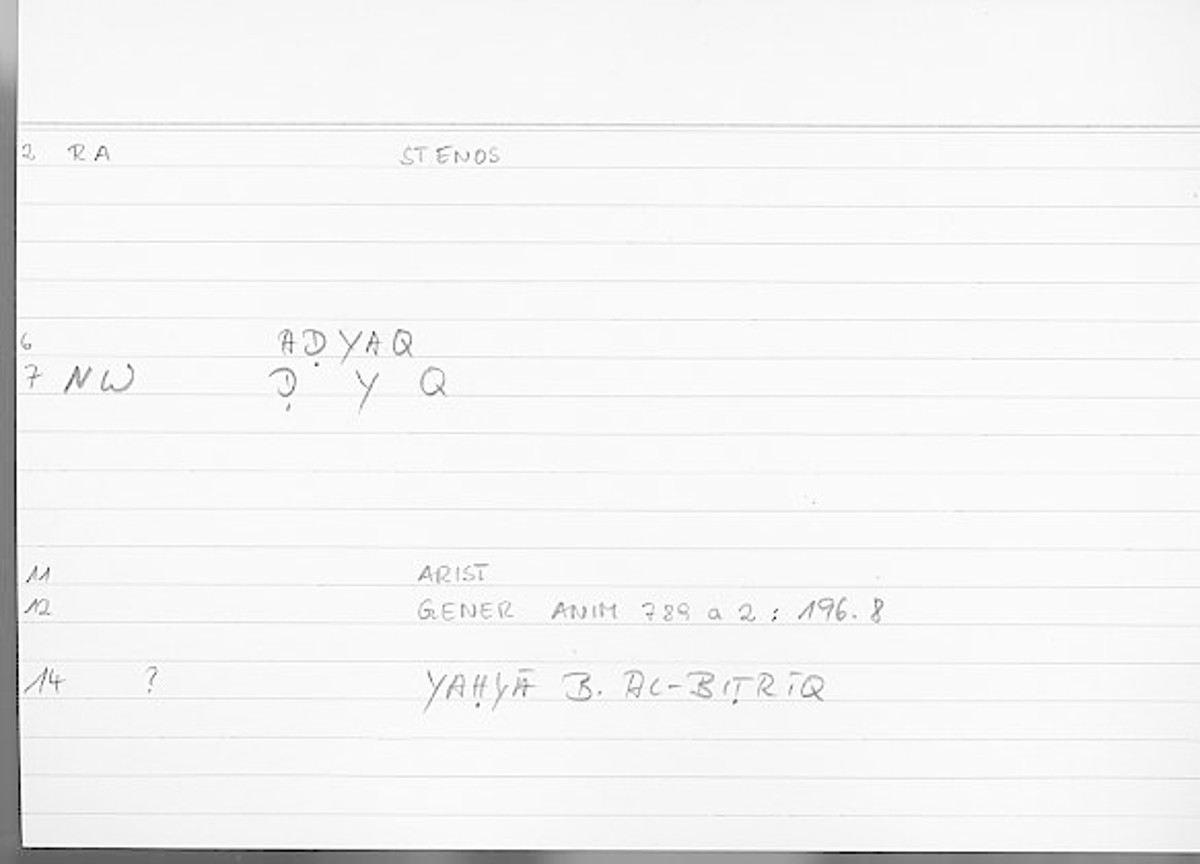 2 RA STENOS
6 AḌYAQ
7 NW Ḍ Y Q
11 ARIST
12 GENER ANIM 789 a 2 : 196. 8
14 ? YAḤYĀ B. AL-BIṬRĪQ